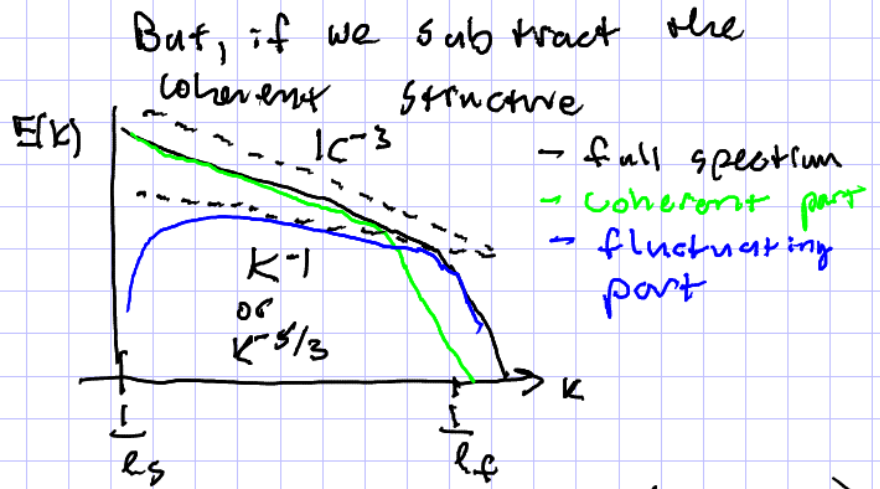 But, if we subtract the
coherent structure
E(k)
k⁻³
- full spectrum
- coherent part
- fluctuating
part
k⁻¹
or
k⁻⁵/³
k
1
ls
1
lf